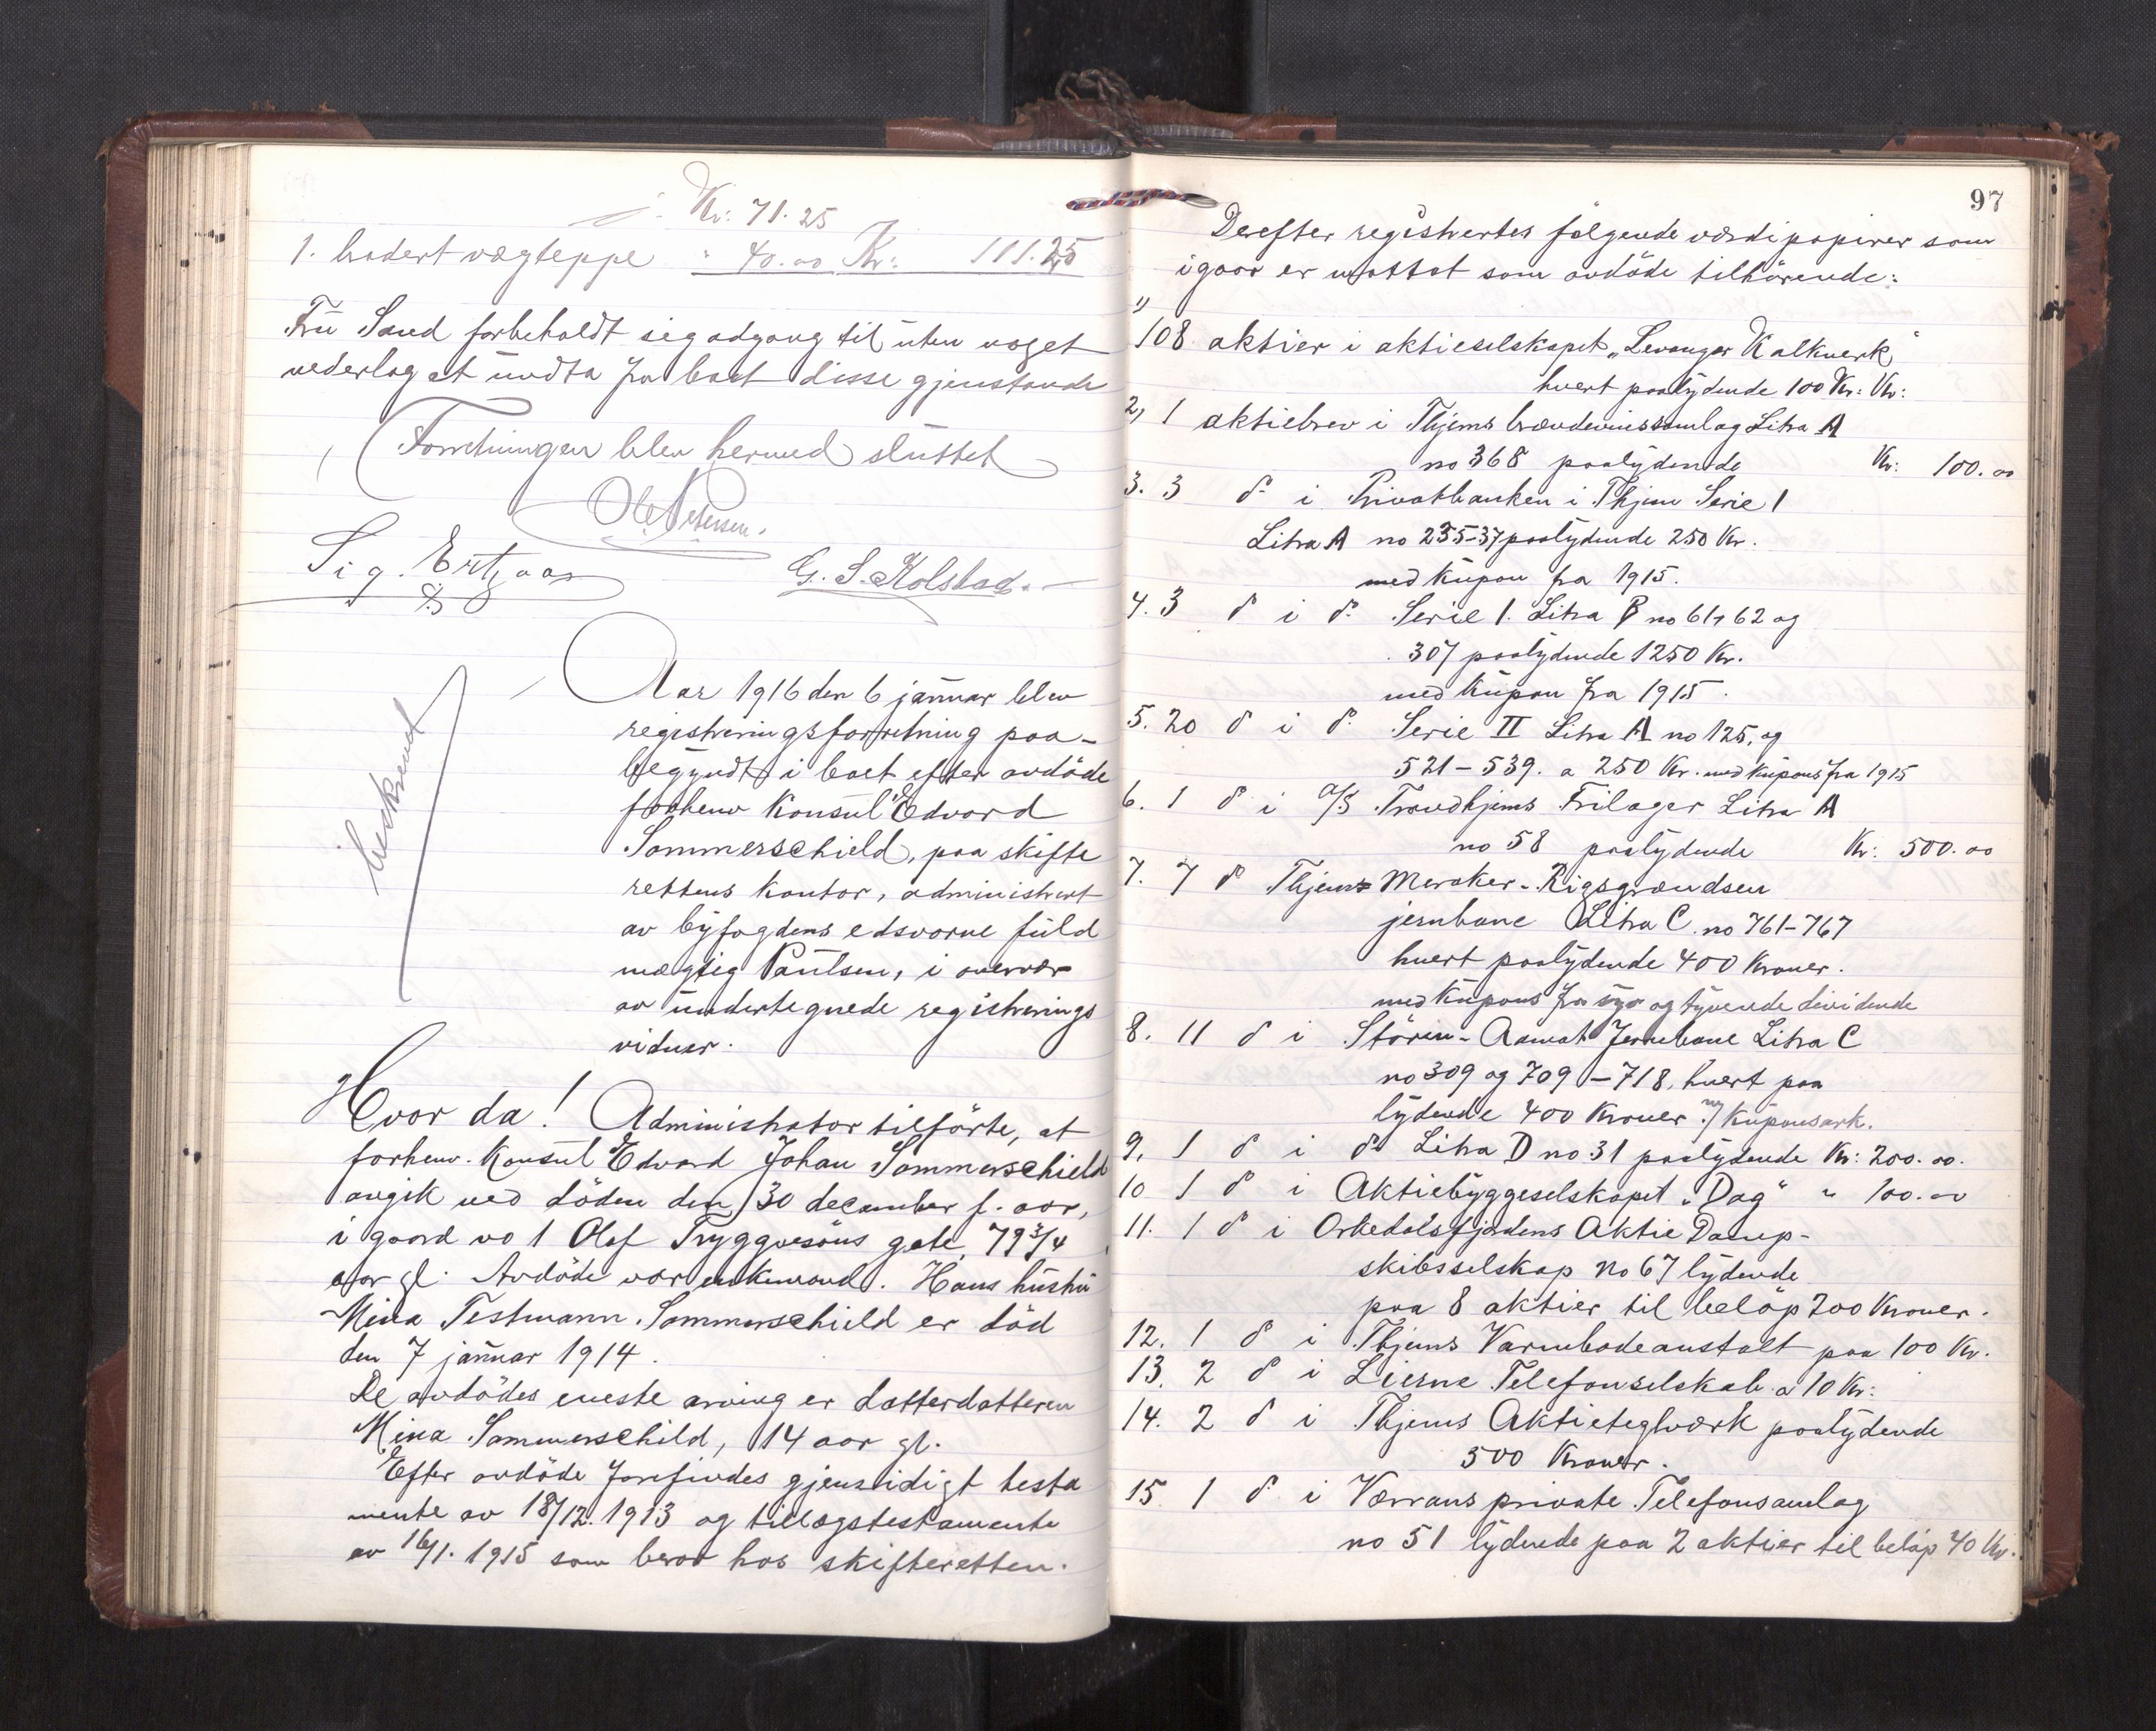 Kr: 71.25
1. brodert vægteppe " 40.00 Kr: 111.25
Fru Sand forbeholdt sig adgang til uten noget
vederlag at undta fra boet disse gjenstande
Forretningen blev hermed sluttet
Ole Petersen.
Sig. Ertzaas
G. S. Kolstad.
beskrevet
Aar 1916 den 6 januar blev
registreringsforretning paa-
begyndt i boet efter avdöde
forhenv Konsul Edvard
Sommerschield, paa skifte
rettens kontor, administrert
av byfogdens edsvorne fuld
mægtig Paulsen, i overvær
av undertegnede registrerings
vidner.
Hvor da! Administrator tilförte, at
forhenv. Konsul Edvard Johan Sommerschield
avgik ved döden den 30 december f. aar,
i gaard no 1 Olaf Tryggvesöns gate, 79 3/4
aar gl. Avdöde var enkemand. Hans hustru
Mina Testmann Sommerschield er död
den 7 januar 1914.
De avdödes eneste arving er datterdatteren
Mina Sommerschild, 14 aar gl.
Efter avdöde forefindes gjensidigt testa
mente av 18/12. 1913 og tillægstestamente
av 16/1. 1915 som beror hos skifteretten.
97
Derefter registrertes fölgende værdipapirer som
igaar er mottat som avdöde tilhörende:
1)
108 aktier i aktieselskapet „Levanger Kalkverk"
hvert paalydende 100 Kr: Kr:
2, 1 aktiebrev i Thjems brændevinssamlag Litra A
no 368 paalydende Kr: 100.00
3. 3 do i Privatbanken i Thjem Serie 1
Litra A no 235-37 paalydende 250 Kr.
med kupon fra 1915.
4. 3 do i do Serie 1. Litra B no 61, 62 og
307 paalydende 1250 Kr.
med kupon fra 1915.
5. 20 do i do Serie II Litra A no 125, og
521-539. a 250 Kr. med kupons fra 1915
6. 1 do i A/S Trondhjems Frilager Litra A
no 58 paalydende Kr: 500.00
7. 7 do Thjems Meraker-Rigsgrændsen
jernbane Litra C no 761-767
hvert paalydende 400 Kroner.
med kupons fra syv og tyvende dividende
8. 11 do i Stören-Aamot Jernbane Litra C
no 309 og 709-718, hvert paa
lydende 400 Kroner m/ kuponsark.
9, 1 do i do Litra D no 31 paalydende Kr: 200.00.
10 1 do i Aktiebyggeselskapet „Dag" " 100.00
11. 1 do i Orkedalsfjordens Aktie Damp-
skibsselskap no 67 lydende
paa 8 aktier til belöp 200 Kroner.
12. 1 do i Thjems Varmbadeanstalt paa 100 Kr.
13. 2 do i Lierne Telefonselskab a 10 Kr:
14. 2 do i Thjems Aktieteglværk paalydende
500 Kroner.
15 1 do i Værrans private Telefonsamlag
no 51 lydende paa 2 aktier til belöp 40 Kr.